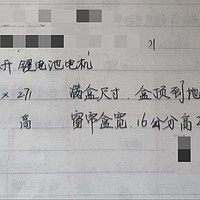 21
开 锂电池电机
× 271 满盒尺寸. 盒顶到地
高 窗帘盒宽 16公分高2